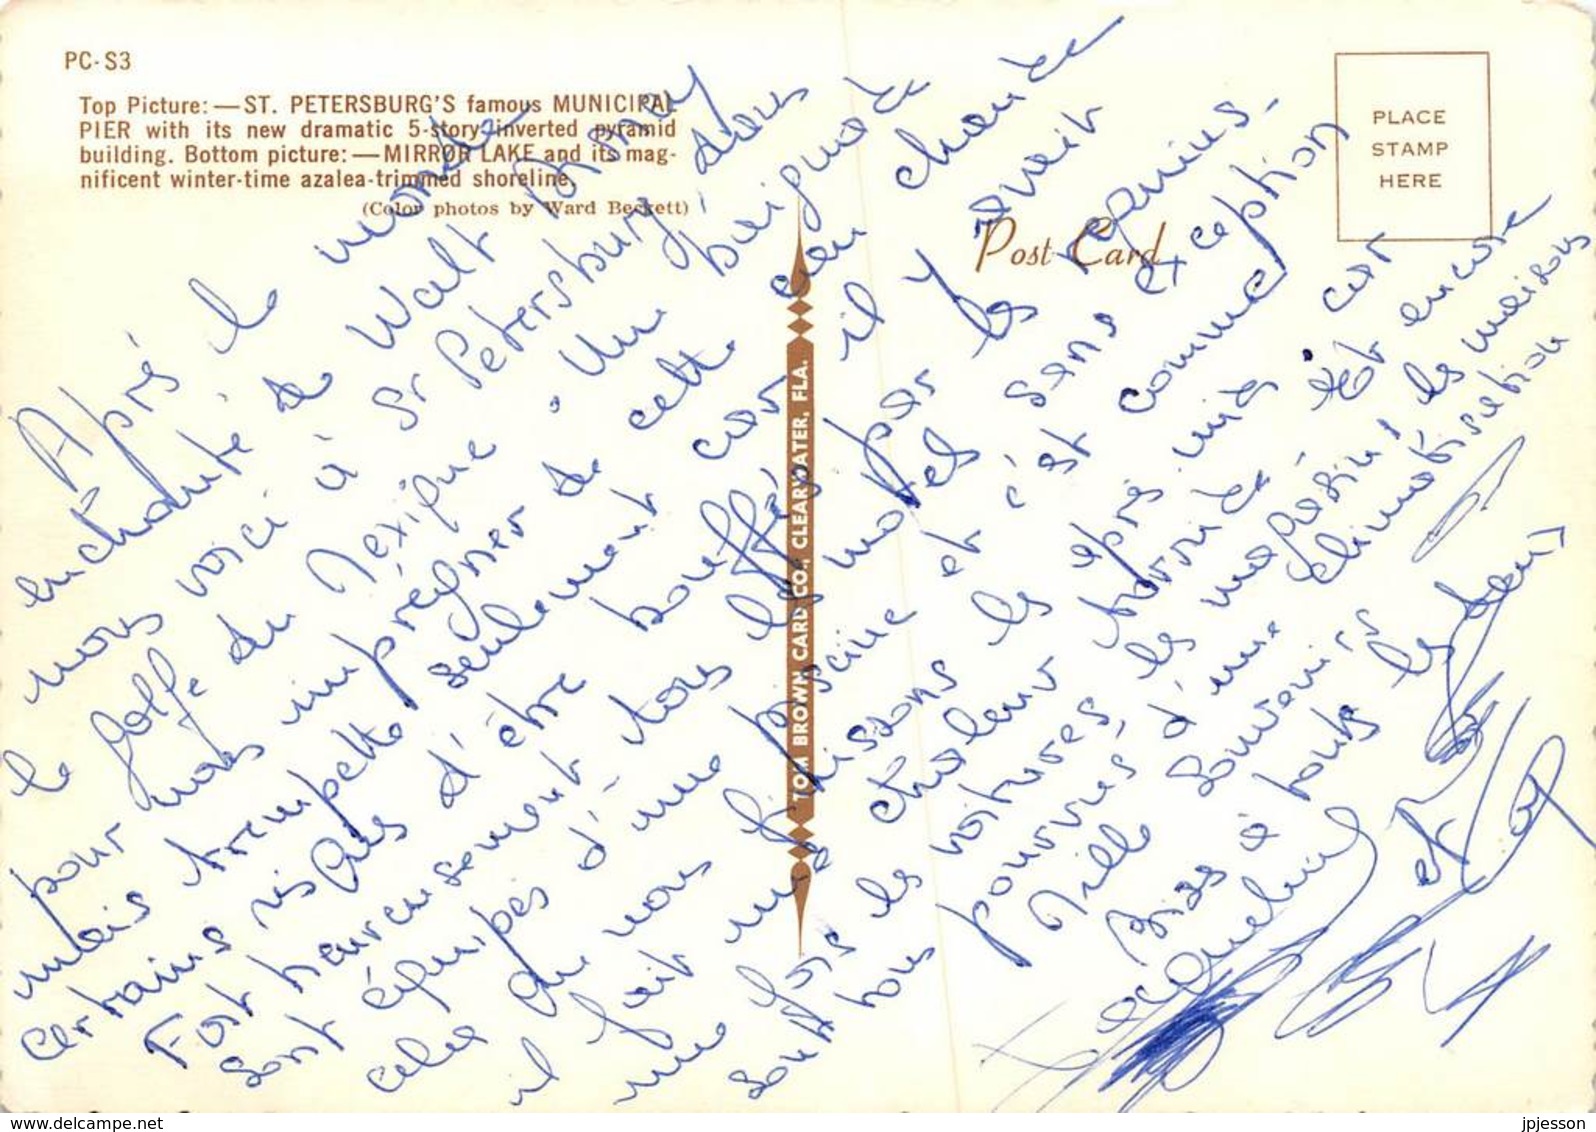 PC-S3
Top Picture:—ST. PETERSBURG'S famous MUNICIPAL
PIER with its new dramatic 5-story inverted pyramid
building. Bottom picture:—MIRROR LAKE and its mag-
nificent winter-time azalea-trimmed shoreline.
(Color photos by Ward Beckett)
PLACE
STAMP
HERE
Post Card
TOM BROWN CARD CO., CLEARWATER, FLA.
Après le monde
enchanté de Walt Disney
nous voici à St Petersburg, dans
le golfe du Mexique. Une baignade
pour nous imprégner de cette eau chaude
mais trempette seulement car il y avait
certains risques d'être bouffés par les requins.
Fort heureusement tous les motels sans exception
sont équipés d'une piscine et c'est comme
cela que nous finissons les après midi car
il fait une chaleur torride et encore
une fois les voitures, les magasins, les maisons
sont tous pourvus d'une climatisation
Mille souvenirs
Bises à toutes les deux
Jacqueline et
www.delcampe.net
jpjesson